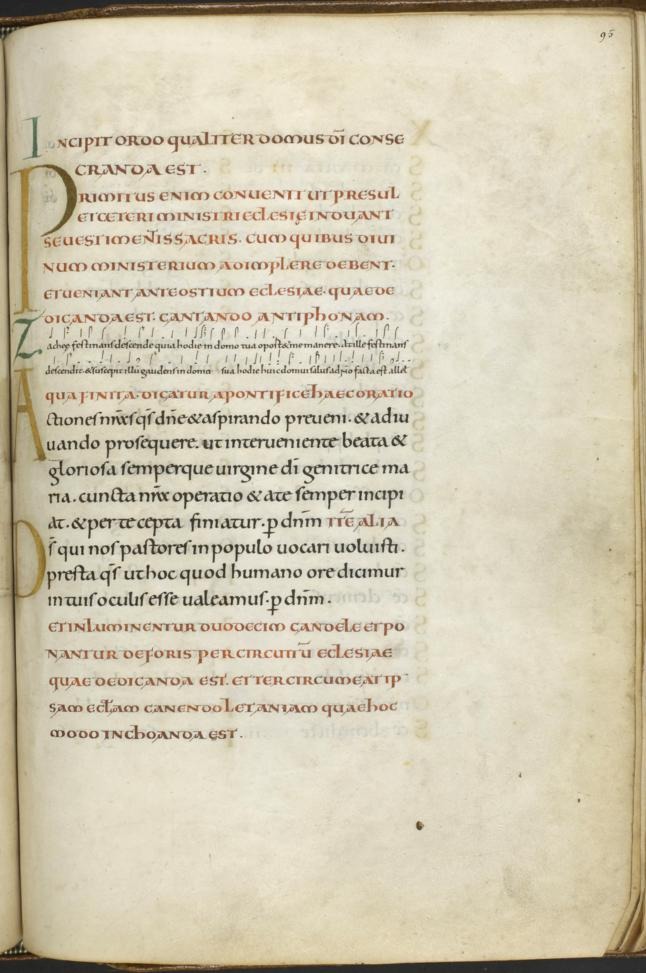 95
INCIPIT ORDO QUALITER DOMUS DĪ CONSE
CRANDA EST.
PRIMITUS ENIM CONVENIT UT PRESUL
ET CETERI MINISTRI ECLESIĘ INDUANT
SE UESTIMENTIS SACRIS. CUM QUIBUS DIUI
NUM MINISTERIUM ADIMPLERE DEBENT.
ET UENIANT ANTE OSTIUM ECLESIAE. QUAE DE
DICANDA EST. CANTANDO ANTIPHONAM.
Zachee festinans descende quia hodie in domo tua oportet me manere. at ille festinans
descendit. & suscepit illū gaudens in domo sua hodie huic domui salus a dn̄o facta est allel
QUA FINITA. DICATUR A PONTIFICE HAEC ORATIO
Actiones nr̄as qs̄ dn̄e & aspirando preueni. & adiu
uando prosequere. ut interueniente beata &
gloriosa semperque uirgine dī genitrice ma
ria. cuncta nr̄a operatio & a te semper incipi
at. & per te cepta finiatur. p dn̄m ITĒ ALIA
Ds̄ qui nos pastores in populo uocari uoluisti.
presta qs̄ ut hoc quod humano ore dicimur
in tuis oculis esse ualeamus. p dn̄m.
ET INLUMINENTUR DUODECIM CANDELE ET PO
NANTUR DEFORIS PER CIRCUITŪ ECLESIAE
QUAE DEDICANDA EST. ET TER CIRCUMEAT IP
SAM ECL̄AM CANENDO LETANIAM QUAE HOC
MODO INCHOANDA EST.